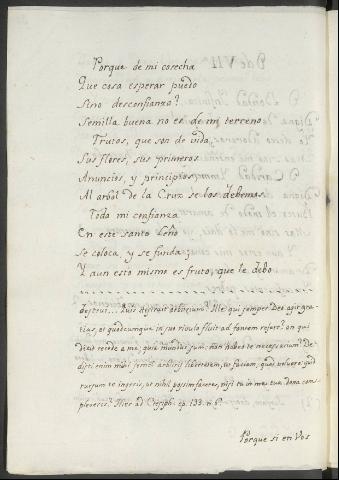 Porque de mi cosecha
Que cosa esperar puedo
Sino desconfianza?
Semilla buena no es de mi terreno.
Frutos, que son de vida,
Sus flores, sus primeros
Anuncios, y principios,
Al arbol de la Cruz se los debemos.
Toda mi confianza
En este santo Leño
Se coloca, y se funda;
Y aun esto mismo es fruto, que le debo
destruit... Quis destruit arbitrium? Ille qui semper Deo agit gra-
tias, et quodcumque in suo rivulo fluit ad fontem refert? an qui
dicit recede a me, quia mundus sum: non habeo te necessarium? De-
disti enim mihi semel arbitrii libertatem, ut faciam, quod voluero: quid
rursum te ingeris, ut nihil possim facere, nisi tu in me tua dona com-
pleveris? Hier. ad Ctesiph. ep. 133. n. 6.
Porque si en Vos